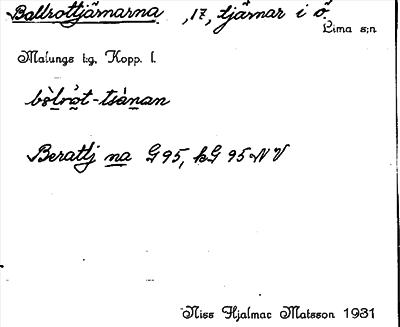 Ballrottjärnarna , 17, tjärnar i ö.
Lima s:n
Malungs t:g, Kopp. l.
bòlròt-tsánan
Berattj na G 95, kG 95 NV
Niss Hjalmar Matsson 1931